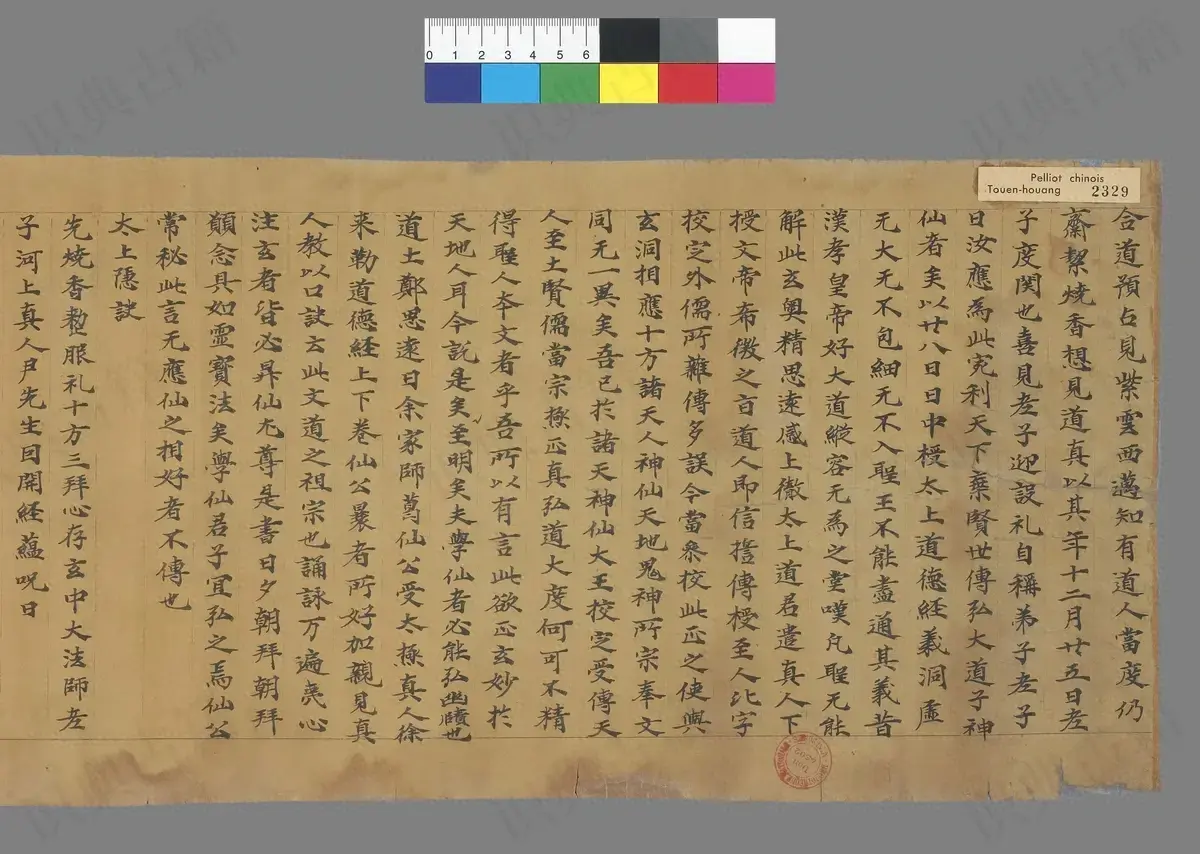 Pelliot chinois
Touen-houang 2329
0 1 2 3 4 5 6
合道預占見紫雲西邁知有道人當度仍
齋絜燒香想見道真以其年十二月廿五日老
子度関也喜見老子迎設礼自稱弟子老子
曰汝應為此宛利天下棄賢世傳弘大道子神
仙者矣以廿八日日中授太上道德経義洞虛
无大无不包細无不入聖王不能盡通其義昔
漢孝皇帝好大道縱容无為之堂嘆凡聖无能
解此玄奧精思遠感上徹太上道君遣真人下
授文帝希微之旨道人即信誓傳授至人比字
校定外儒所雜傳多誤今當叅校此正之使與
玄洞相應十方諸天人神仙天地鬼神所宗奉文
同无一異矣吾已於諸天神仙大王校定受傳天
人至士賢儒當宗極正真弘道大度何可不精
得聖人夲文者乎吾所以有言此欲正玄妙於
天地人耳今說是矣至明矣夫學仙者必能弘幽賾也
道士鄭思遠曰余家師葛仙公受太極真人徐
来勒道德経上下卷仙公曩者所好加親見真
人教以口訣云此文道之祖宗也誦詠万遍夷心
注玄者皆必昇仙尤尊是書日夕朝拜朝拜
願念具如靈寶法矣學仙君子宜弘之焉仙公
常秘此言无應仙之相好者不傳也
太上隱訣
先燒香整服礼十方三拜心存玄中大法師老
子河上真人尹先生因開経蘊呪曰